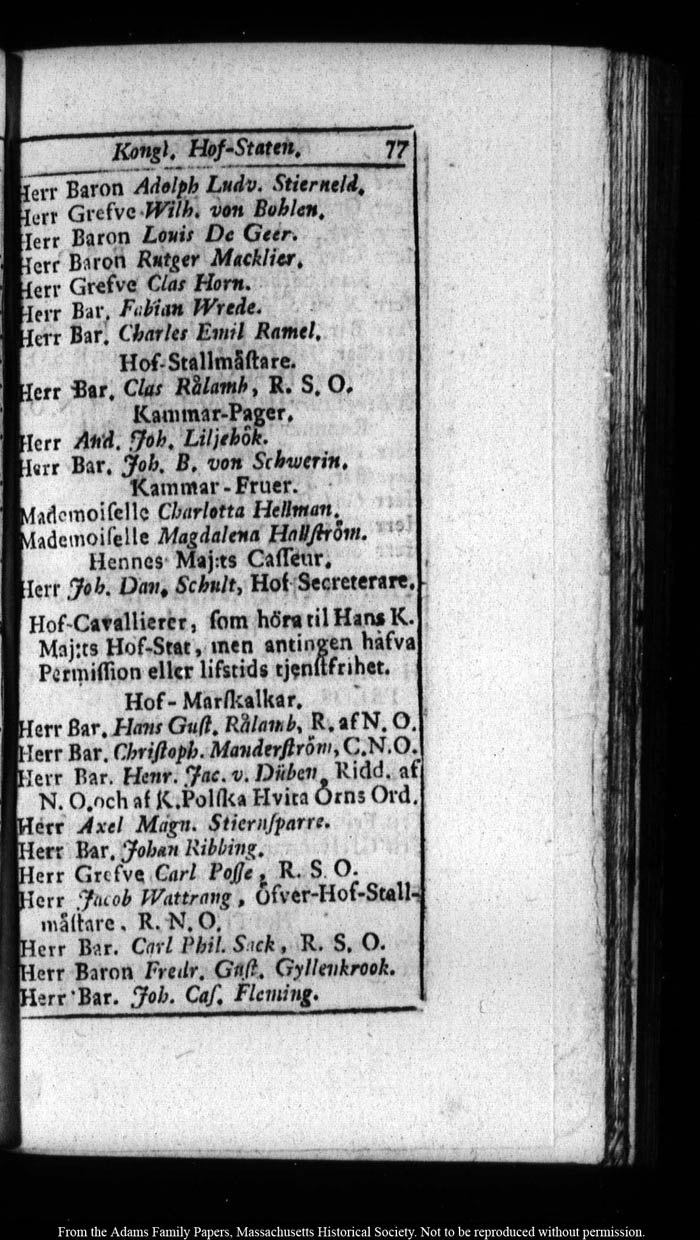 Kongl. Hof-Staten. 77
Herr Baron Adolph Ludv. Stierneld.
Herr Grefve Wilh. von Bohlen.
Herr Baron Louis De Geer.
Herr Baron Rutger Macklier.
Herr Grefve Clas Horn.
Herr Bar. Fabian Wrede.
Herr Bar. Charles Emil Ramel.
Hof-Stallmåſtare.
Herr Bar. Clas Rålamb, R. S. O.
Kammar-Pager.
Herr And. Joh. Liljehök.
Herr Bar. Joh. B. von Schwerin.
Kammar-Fruer.
Mademoiſelle Charlotta Hellman.
Mademoiſelle Magdalena Hallſtröm.
Hennes Maj:ts Caſſeur.
Herr Joh. Dan. Schult, Hof Secreterare.
Hof-Cavallierer, ſom höra til Hans K.
Maj:ts Hof-Stat, men antingen håfva
Permiſſion eller lifstids tjenſtfrihet.
Hof-Marſkalkar.
Herr Bar. Hans Guſt. Rålamb, R. af N. O.
Herr Bar. Chriſtoph. Manderſtröm, C.N.O.
Herr Bar. Henr. Jac. v. Düben, Ridd. af
N. O. och af K. Polſka Hvita Örns Ord.
Herr Axel Magn. Stiernſparre.
Herr Bar. Johan Ribbing.
Herr Grefve Carl Poſſe, R. S. O.
Herr Jacob Wattrang, Öfver-Hof-Stall-
måſtare. R. N. O.
Herr Bar. Carl Phil. Sack, R. S. O.
Herr Baron Fredr. Guſt. Gyllenkrook.
Herr Bar. Joh. Caſ. Fleming.
From the Adams Family Papers, Massachusetts Historical Society. Not to be reproduced without permission.